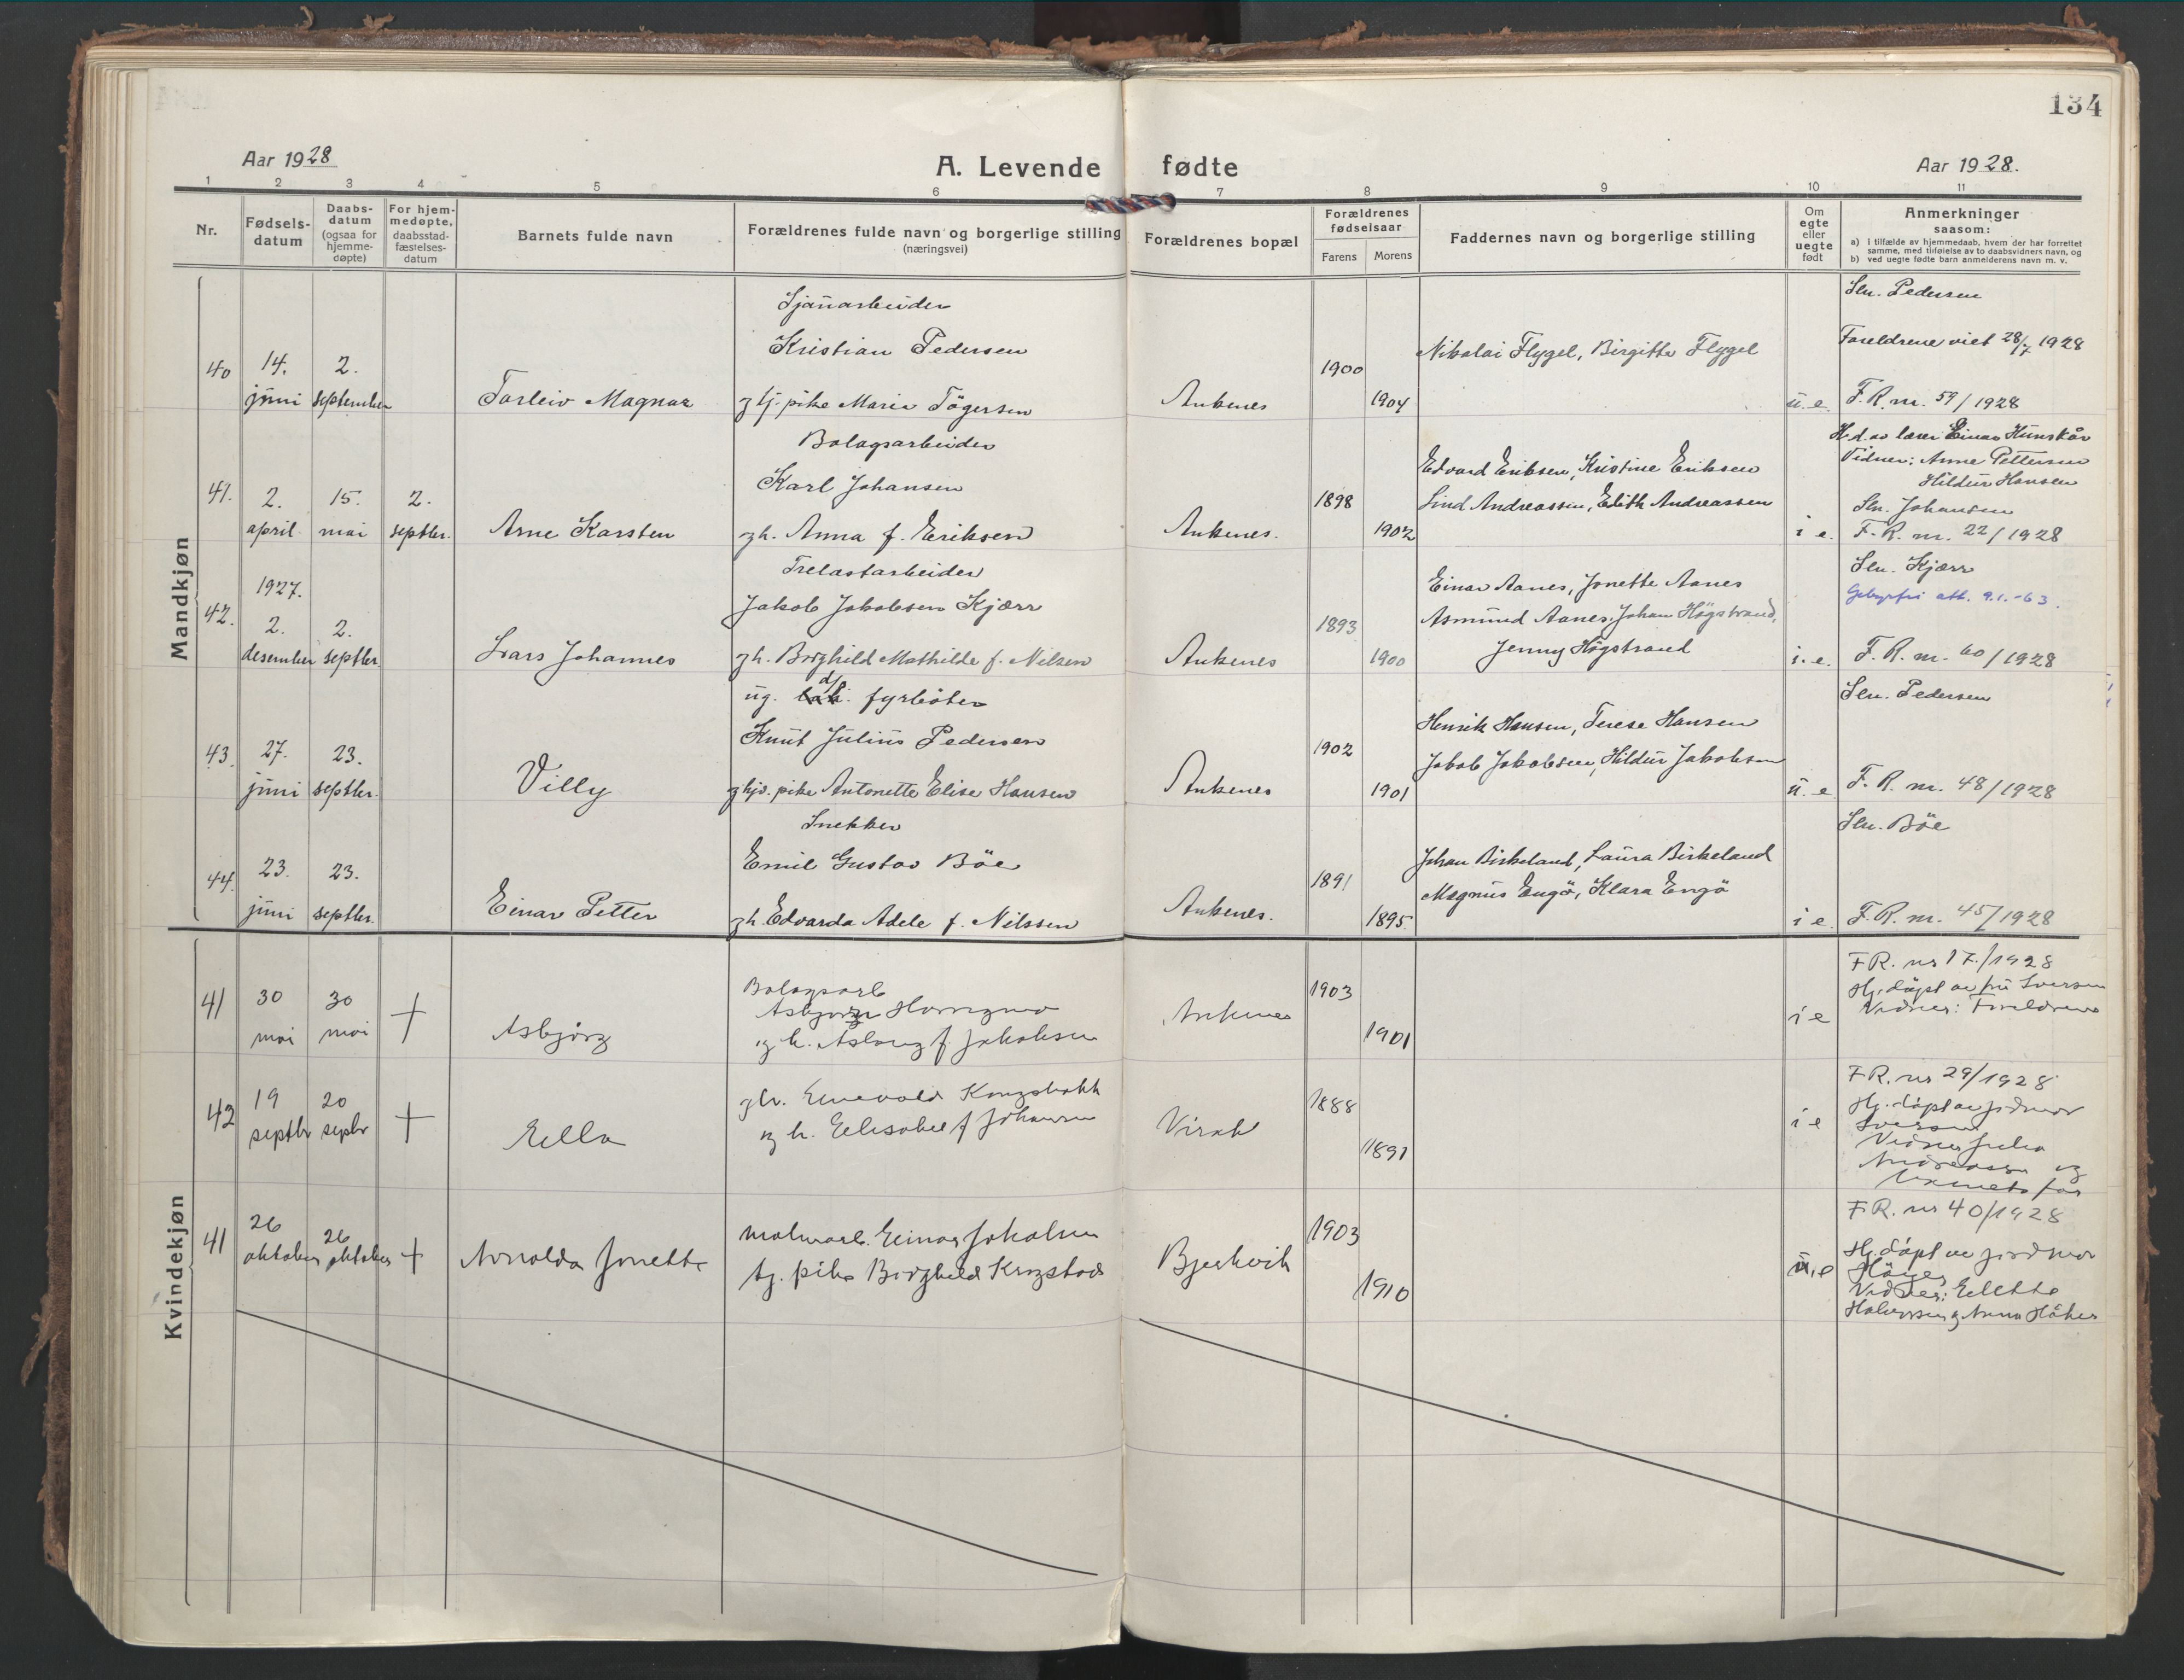 134
Aar 1928
A. Levende fødte
Aar 1928.
1 2 3 4 5 6 7 8 9 10 11
Nr.
Fødsels-
datum
Daabs-
datum
(ogsaa for
hjemme-
døpte)
For hjem-
medøpte,
daabsstad-
fæstelses-
datum
Barnets fulde navn
Forældrenes fulde navn og borgerlige stilling
(næringsvei)
Forældrenes bopæl
Forældrenes
fødselsaar
Farens Morens
Faddernes navn og borgerlige stilling
Om
egte
eller
uegte
født
Anmerkninger
saasom:
a) I tilfælde av hjemmedaab, hvem der har forrettet
samme, med tilføielse av to daabsvidners navn, og
b) ved uegte fødte barn anmelderens navn m. v.
Mandkjøn
40
14.
juni
2.
september
Torleiv Magnar
Sjauarbeider
Kristian Pedersen
g tj. pike Marie Tögersen
Ankenes
1900
1904
Nikolai Flygel, Birgitte Flygel
u. e.
Sln. Pedersen
Foreldrene viet 28/7 1928
F. R. nr. 59/1928
41.
2.
april
15.
mai
2.
septbr.
Arne Karsten
Bolagsarbeider
Karl Johansen
g h. Anna f. Eriksen
Ankenes.
1898
1902
Edvard Eriksen, Kristine Eriksen
Lind Andreassen, Edith Andreassen
i e.
H. d. av lærer Einar Hunskår
Vidner: Anne Pettersen
Hildur Hansen
Sln. Johansen
F. R. nr. 22/1928
42.
1927.
2.
desember
2.
septbr.
Lars Johannes
Trelastarbeider
Jakob Jakobsen Kjærr
g h. Borghild Mathilde f. Nilsen
Ankenes
1893
1900
Einar Aanes, Jonette Aanes
Asmund Aanes, Johan Högstrand,
Jenny Högstrand
i. e.
Sln. Kjærr
Gebyrfri att. 9.1.-63.
F. R. nr. 60/1928
43.
27.
juni
23.
septbr.
Villy
ug. d/s. fyrböter
Knut Julius Pedersen
g hjv. pike Antonette Elise Hansen
Ankenes
1902
1901
Henrik Hansen, Terese Hansen
Jakob Jakobsen, Hildur Jakobsen
u. e
Sln. Pedersen
F. R. nr. 48/1928
44.
23.
juni
23.
septbr.
Einar Petter
Snekker
Emil Gustav Böe
g h. Edvarda Adele f. Nilssen
Ankenes.
1891
1895
Johan Birkeland, Laura Birkeland
Magnus Engö, Klara Engö
i e.
Sln. Böe
F. R. nr. 45/1928
Kvindekjøn
41
30
mai
30
mai
+
Asbjörg
Bolagsarb
g h. Aslaug f Jakobsen
Ankenes
1903
1901
i e
F R. nr 17/1928
Hj. döpt av fru Iversen
Vidner: Foreldrene
42
19
septbr
20
sepbr
+
Ella
gbr. Enevold Kongsbakk
g h. Elisabet f Johansen
Virak
1888
1891
i e
F R. nr 29/1928
Hj. döpt av jordmor
Iversen
Vidner Julie
Andreassen og
barnets far
41
26
oktober
26
oktober
+
Arnolda Jonette
malmarb. Einar Jakobsen
tj. pike Borghild Krogstad
Bjerkvik
1903
1910
u. e
F. R. nr 40/1928
Hj. döpt av jordmor
Vidner: Elette
Halvorsen g Anna